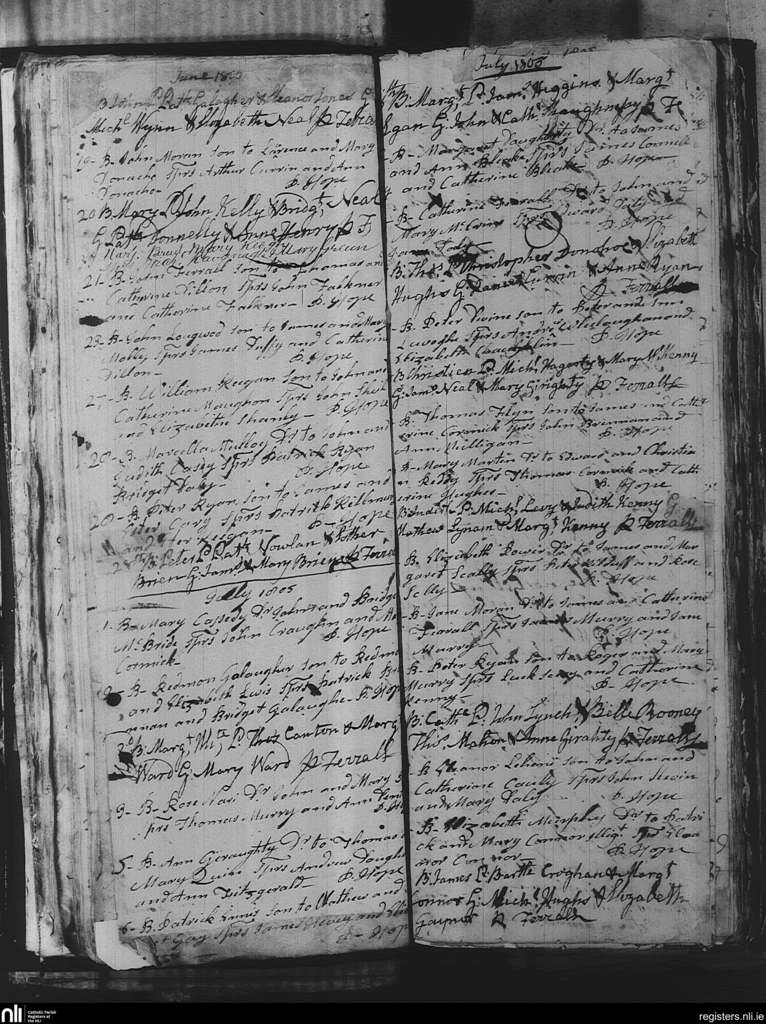 June 1805
B John P. Patk Galagher & Eleanor Jones G
Michl Wynn & Elizabeth Neal p Ferrall
19- B- John Moran son to Larence and Mary
Donache Sprs Arthur Currin and Ann
Donache- P. Hope
20 B Mary P John Kelly & Bridgt Neal
G Patk Connelly & Anne Henry p F
Mary Green
21- B- John Ferrall son to Thomas an
Catherine Dillon Sprs John Falkner
and Catherine Falkner- P. Hope
23- B- John Longwod son to James and Mary
Molloy Sprs James Duffy and Catherin
Dillon- P. Hope
27- B- William Keegan son to John and
Catherine Maughon Sprs John
and Elizabeth Shanly- P. Hope
28- B- Marcella Mulloy Dr to John and
Judith Casey Sprs Patrick Ryan
Bridget Daly- P. Hope
28- B- Peter Ryan son to James and
Cory Sprs Patrick
Keegan- P- Hope
B Peter P Patk Nowlan & Esther
Brien G Jams & Mary Brien p Ferrall
July 1805
1- B- Mary Cassedy Dr John and Bridge
McBride Sprs John Craughin and
Cormick- P. Hope
2- B- Redmon Galaugher son to Redmo
and Elizabeth Lewis Sprs Patrick Br
nnan and Bridget Galaughe- P. Hop
2d B Margt P Thos Canton & Margt
Ward G Mary Ward p Ferrall
3- B- Rose Dr John and Mary
Sprs Thomas Murry and Ann
5- B- Ann Geraughty Dr to Thomas
Mary Quin Sprs Andrew Daugh
and Ann Fitzgerald- P. Hope
6- B- Patrick Ennis son to Mathew and
Gay Sprs James and
P- Hope
July 1805
B. Margt P. Jams Higgins & Margt
Egan G John & Cathe Shaughnessy p Fe
B- Margaret Daugherty Dr to James
and Ann Bleake Sprs James Connell
and Catherine Bleake- P- Hope
B- Catherine Ferrall Dr to John and
Mary McCann Sprs Edward Daly and
Daly P- Hope
B. Thos P Christopher Donohoe & Elizabeth
Hughs G James Currin & Anne Ryan
p Ferrall
B- Peter Divine son to Peter and Ann
Sprs Andrew McLaughan and
Elizabeth Craughlin- P- Hope
B Christien P. Michl Hagerty & Mary McKenny
G Jams Neal & Mary Girighty p Ferrall
B- Thomas Flyn son to James and Cath
erine Cormick Sprs John Brinnan and
Ann Milligan- P- Hope
B- Mary Martin Dr to Edward and Christia
n Sprs Thomas Cormick and Cath
erine Hughes- P- Hope
B Judith P. Michl Levy & Judith Kenny G
Mathew Lynam & Margt Kenny p Ferrall
B. Elizabeth Power Dr to James and Mar
garet Scally Sprs Peter Duff and Rose
Scally P- Hope
B- Jane Moran Dr to James and Catherine
Ferrall Sprs James Murry and Jane
Murry- P. Hope
B- Peter Ryan son to Roger and Mary
Murry Sprs Luck and Catherine
Kenny- P- Hope
B. Cathe P. John Lynch & Bille Rooney
Thos Mahon & Anne Girality p Ferrall
B Eleanor son to John and
Catherine Caully Sprs John
and Mary Daly P- Hope
B- Elizabeth Murphey Dr to Patri
ck and Mary Connor Sprs Elea
nor Connor P- Hope
B James P. Bartle Croghan & Margt
Connor G Michl Hughs & Elizabeth
p Ferrall
nli
Catholic Parish
Registers at
the NLI
registers.nli.ie